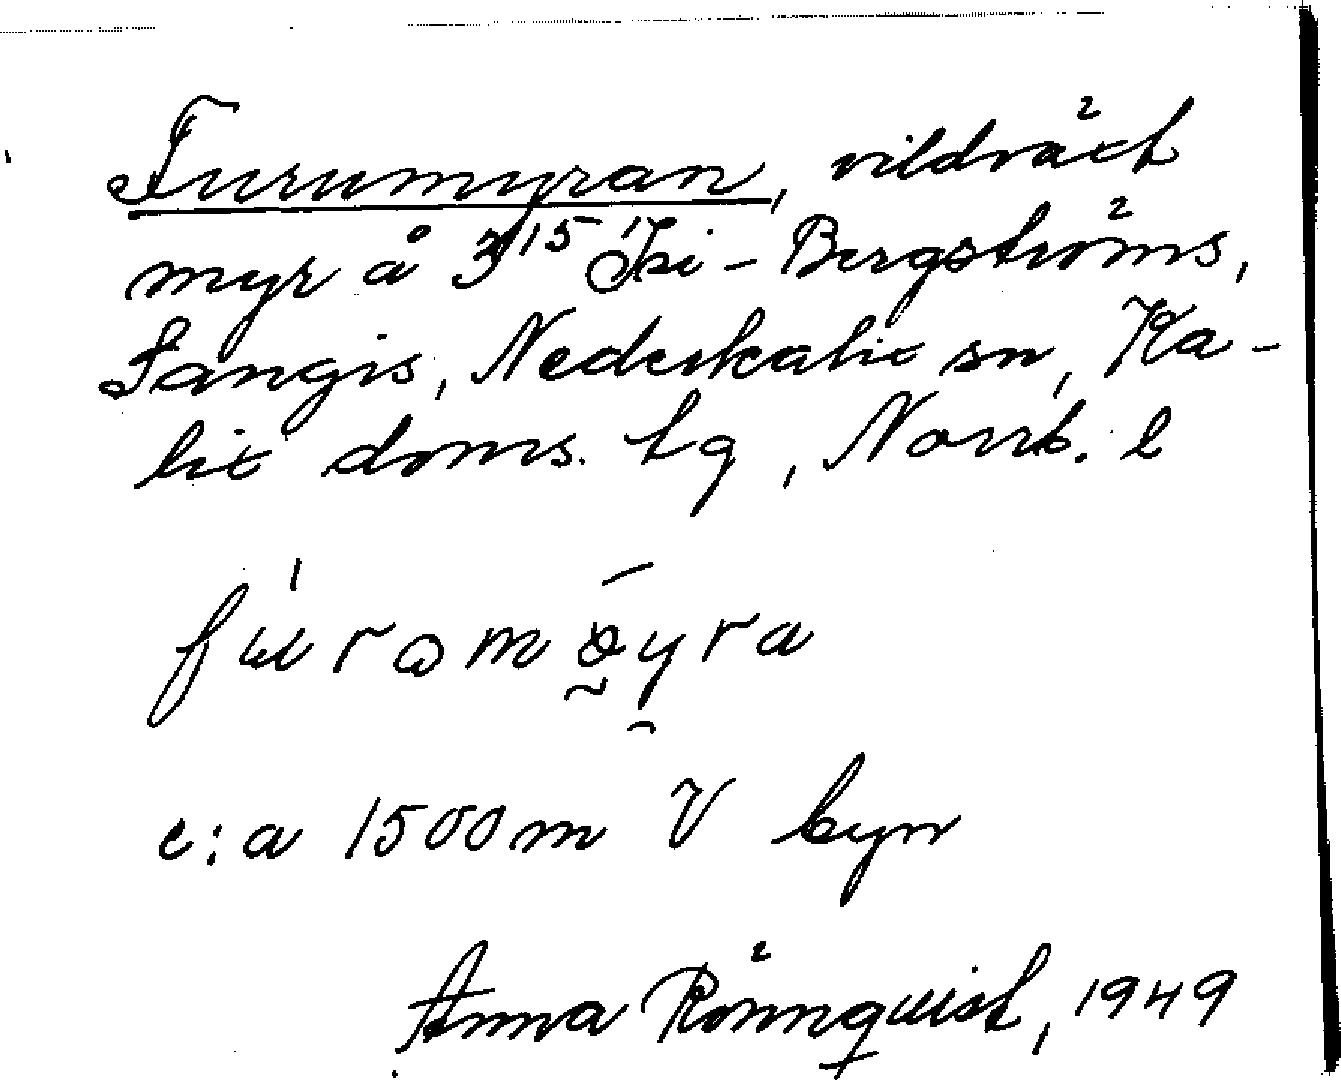 Furumyran, vildväxt
myr å 3/15 Isi - Bergströms,
Sangis, Nederkalix sn, Ka-
lix doms. tg, Norrb. l
furomøyra
c:a 1500 m V byn
Anna Rönnquist, 1949